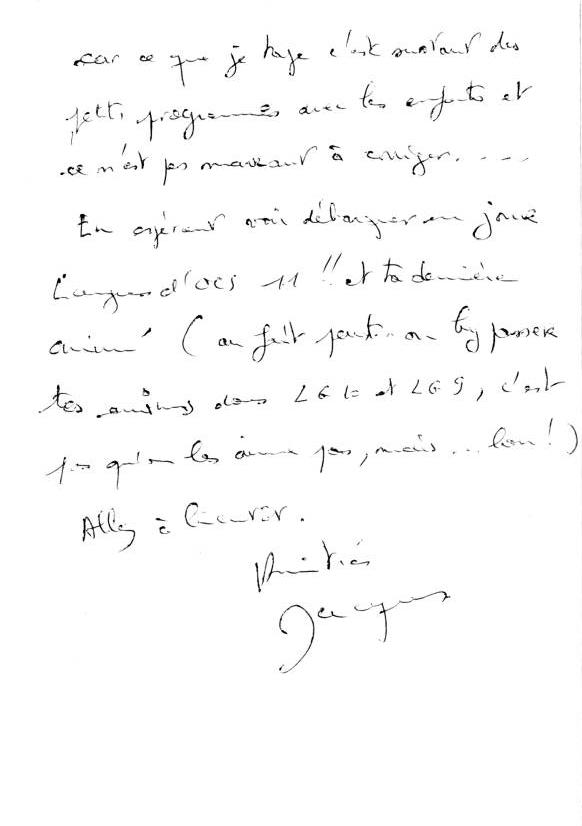 car ce que je tape c'est surtout des
petits programmes avec les enfants et
ce n'est pas marrant à corriger....
En espérant voir débarquer un jour
d'OCS 11 !! et ta dernière
(au fait peut-on by passer
tes anims dans LGL et LGS, c'est
pas qu'on les aime pas, mais... bon!)
Allez à bientôt.
Amitiés
Jacques